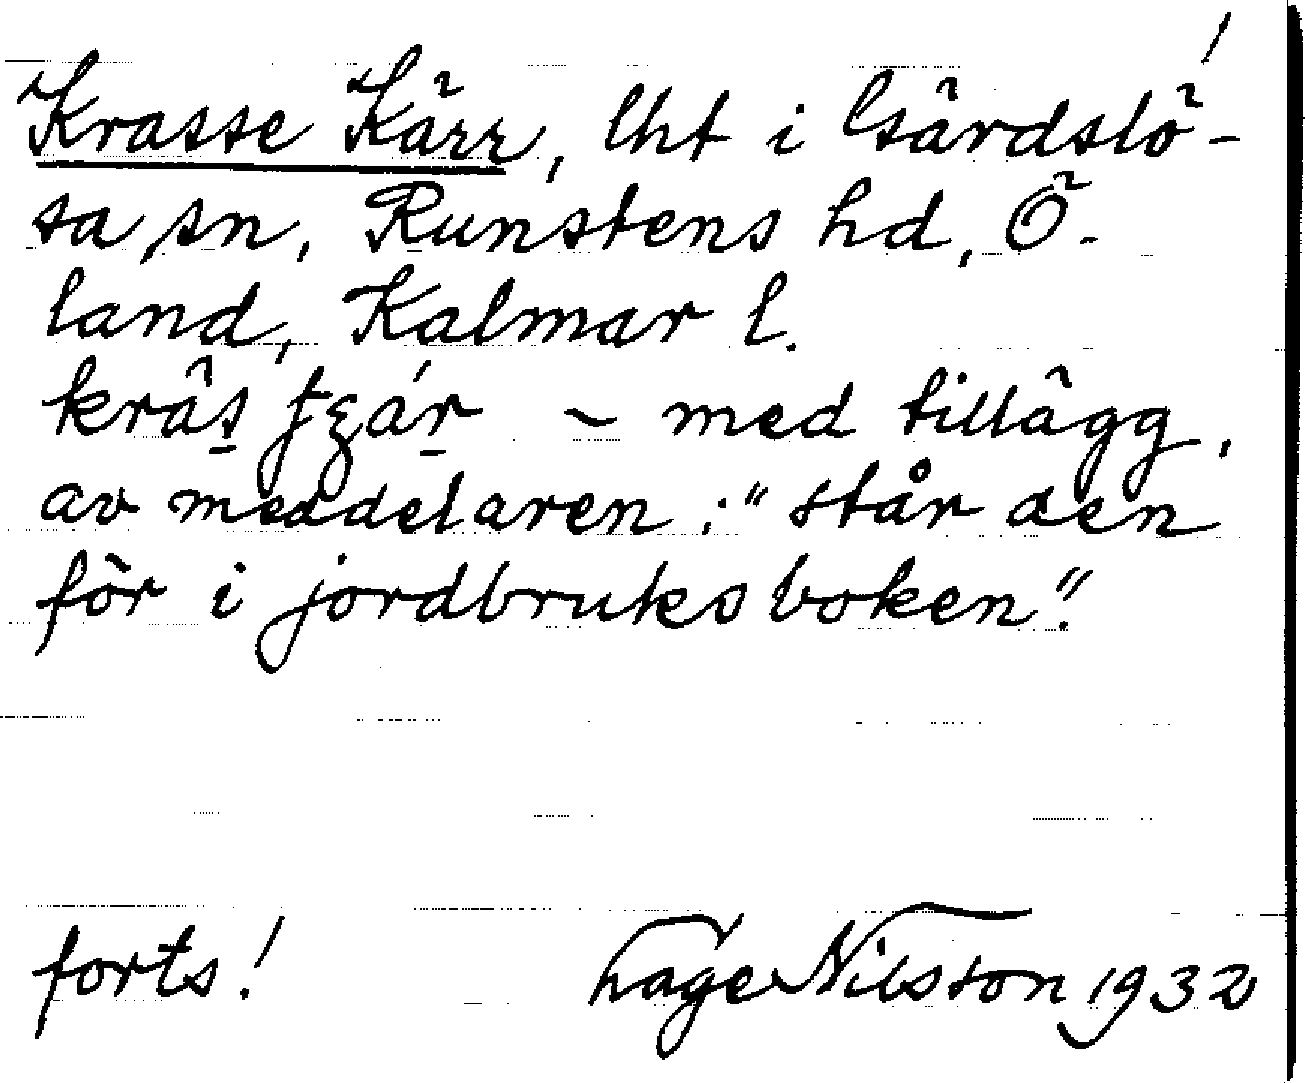 Krasse Kärr, lht i Gärdslö-
sa sn, Runstens hd, Ö-
land, Kalmar l.
– med tillägg,
av meddelaren: "står den
för i jordbruksboken".
forts! Tage Nilsson 1932